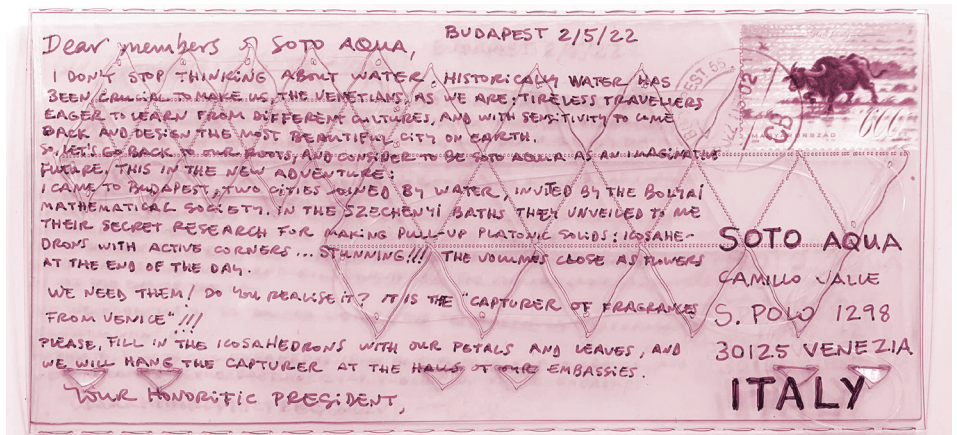 Dear members of SOTO AQUA,
BUDAPEST 2/5/22
I DON'T STOP THINKING ABOUT WATER. HISTORICALLY WATER HAS
BEEN CRUCIAL TO MAKE US, THE VENETIANS, AS WE ARE: TIRELESS TRAVELLERS
EAGER TO LEARN FROM DIFFERENT CULTURES, AND WITH SENSITIVITY TO COME
BACK AND DESIGN THE MOST BEAUTIFUL CITY ON EARTH.
SO, LET'S GO BACK TO OUR ROOTS, AND CONSIDER TO BE SOTO AQUA AS AN IMAGINATIVE
FUTURE. THIS IN THE NEW ADVENTURE:
I CAME TO BUDAPEST, TWO CITIES JOINED BY WATER, INVITED BY THE BOLYAI
MATHEMATICAL SOCIETY. IN THE SZECHENYI BATHS THEY UNVEILED TO ME
THEIR SECRET RESEARCH FOR MAKING PULL-UP PLATONIC SOLIDS: ICOSAHE-
DRONS WITH ACTIVE CORNERS... STUNNING!!! THE VOLUMES CLOSE AS FLOWERS
AT THE END OF THE DAY.
WE NEED THEM! DO YOU REALISE IT? IT IS THE "CAPTURER OF FRAGRANCES
FROM VENICE"!!!
PLEASE, FILL IN THE ICOSAHEDRONS WITH OUR PETALS AND LEAVES, AND
WE WILL HANG THE CAPTURER AT THE HALLS OF OUR EMBASSIES.
YOUR HONORIFIC PRESIDENT,
SOTO AQUA
CAMILLO VALLE
S. POLO 1298
30125 VENEZIA
ITALY